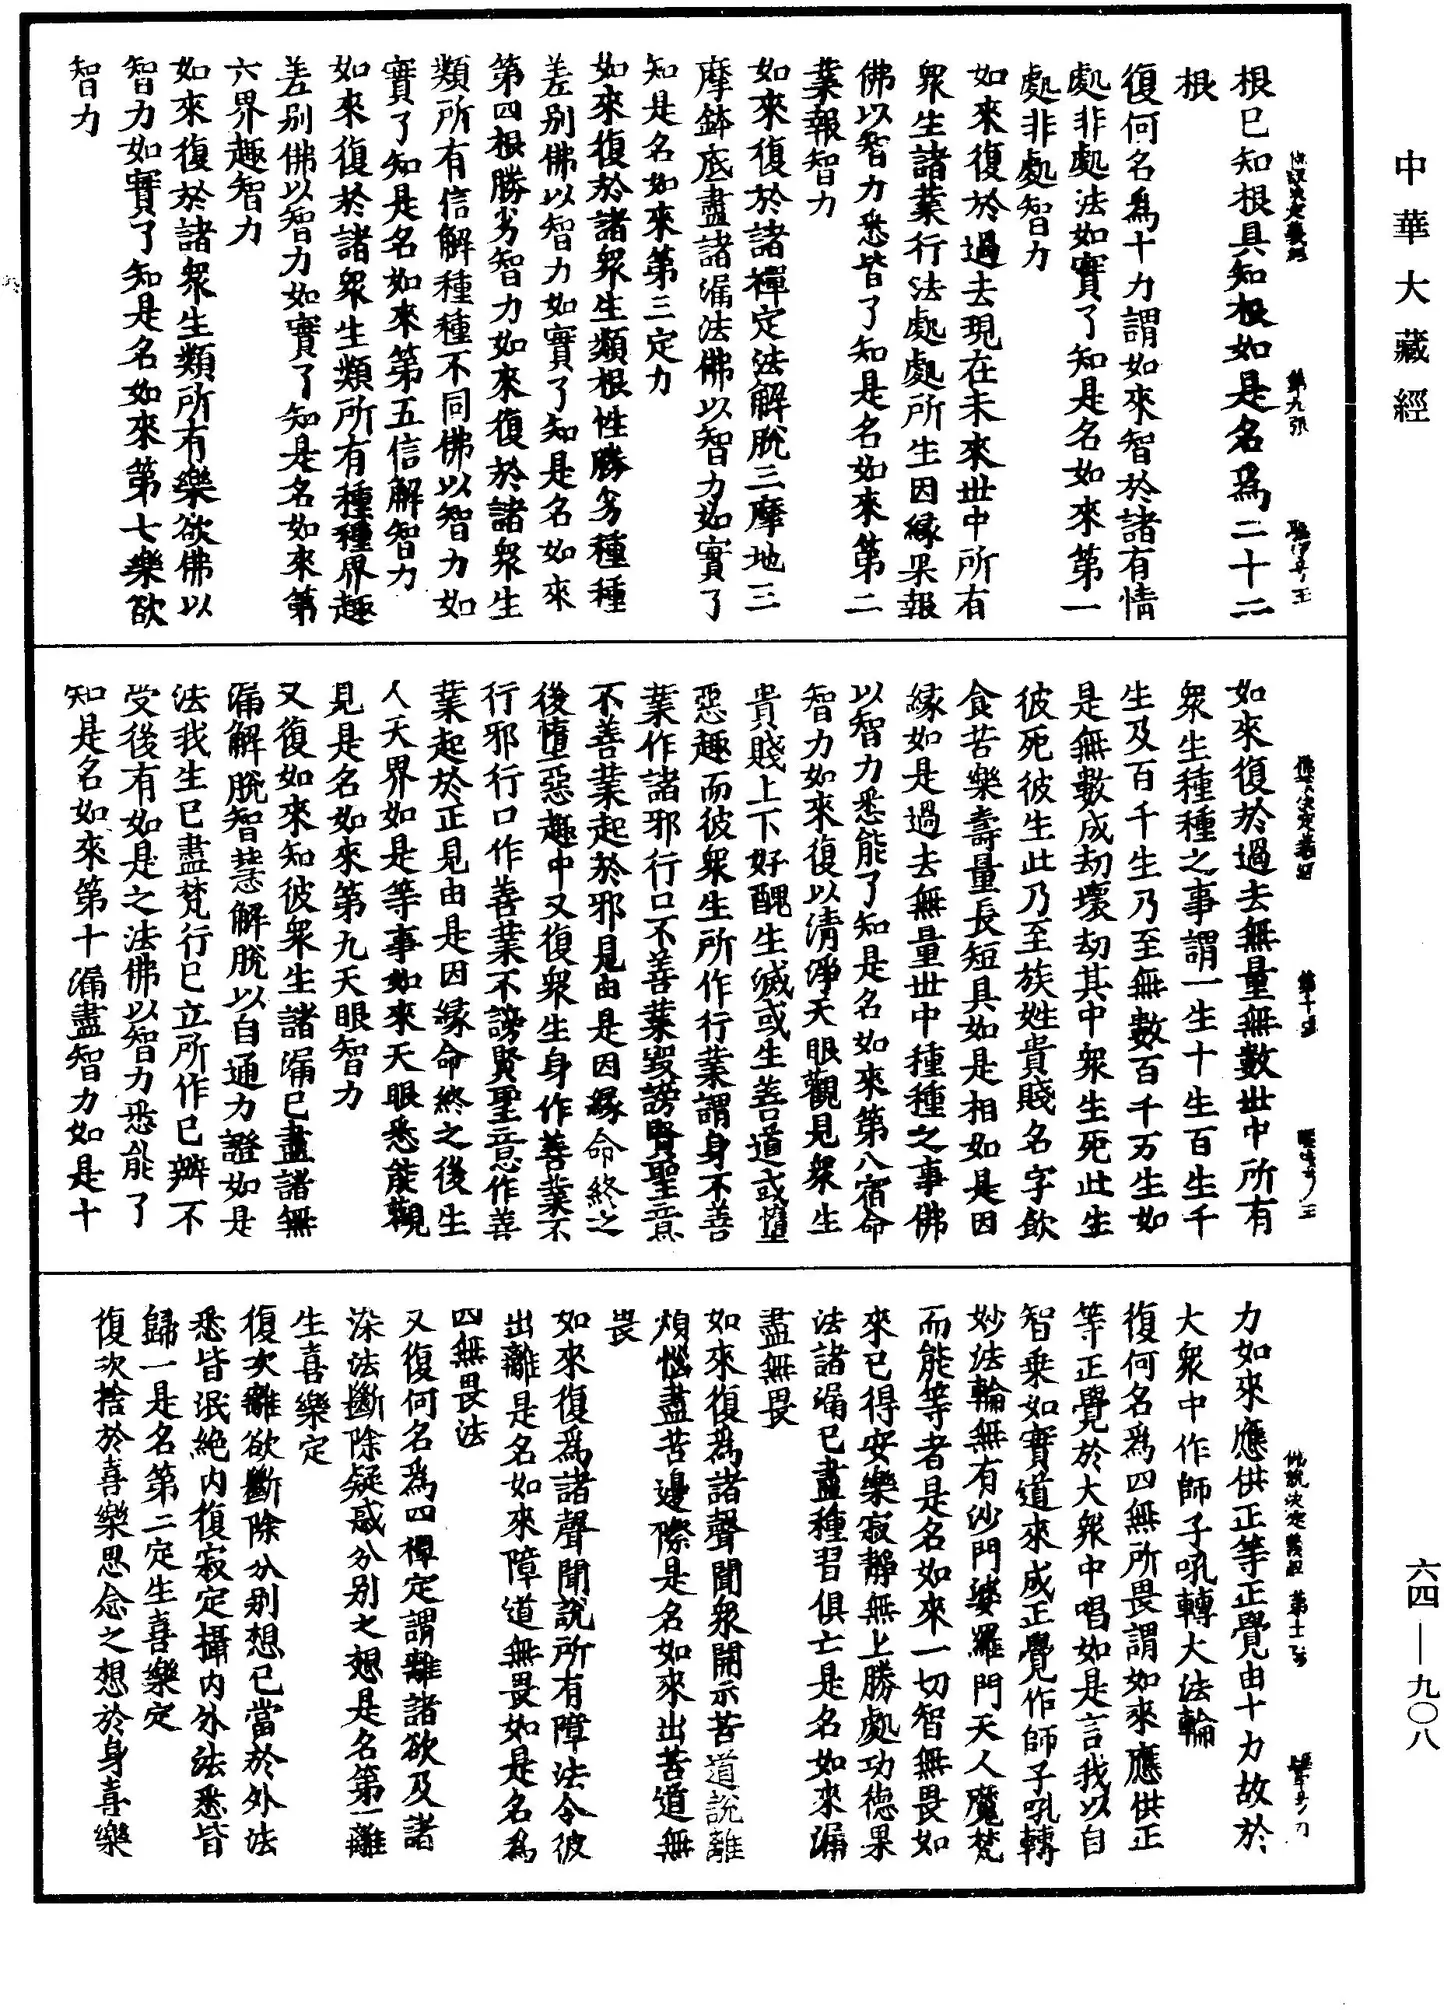 中華大藏經
根已知根具知根如是名爲二十二
根
復何名爲十力謂如來智於諸有情
處非處法如實了知是名如來第一
處非處智力
如來復於過去現在未來世中所有
衆生諸業行法處處所生因緣果報
佛以智力悉皆了知是名如來第二
業報智力
如來復於諸禪定法解脫三摩地三
摩鉢底盡諸漏法佛以智力如實了
知是名如來第三定力
如來復於諸衆生類根性勝劣種種
差別佛以智力如實了知是名如來
第四根勝劣智力如來復於諸衆生
類所有信解種種不同佛以智力如
實了知是名如來第五信解智力
如來復於諸衆生類所有種種界趣
差別佛以智力如實了知是名如來第
六界趣智力
如來復於諸衆生類所有樂欲佛以
智力如實了知是名如來第七樂欲
智力
第九張
如來復於過去無量無數世中所有
衆生種種之事謂一生十生百生千
生及百千生乃至無數百千万生如
是無數成劫壞劫其中衆生死此生
彼死彼生此乃至族姓貴賤名字飲
食苦樂壽量長短具如是相如是因
緣如是過去無量世中種種之事佛
以智力悉能了知是名如來第八宿命
智力如來復以清淨天眼觀見衆生
貴賤上下好醜生滅或生善道或墮
惡趣而彼衆生所作行業謂身不善
業作諸邪行口不善業毀謗賢聖意
不善業起於邪見由是因緣命終之
後墮惡趣中又復衆生身作善業不
行邪行口作善業不謗賢聖意作善
業起於正見由是因緣命終之後生
人天界如是等事如來天眼悉能觀
見是名如來第九天眼智力
又復如來知彼衆生諸漏已盡諸無
漏解脫智慧解脫以自通力證如是
法我生已盡梵行已立所作已辦不
受後有如是之法佛以智力悉能了
知是名如來第十漏盡智力如是十
第十張
力如來應供正等正覺由十力故於
大衆中作師子吼轉大法輪
復何名爲四無所畏謂如來應供正
等正覺於大衆中唱如是言我以自
智乘如實道來成正覺作師子吼轉
妙法輪無有沙門婆羅門天人魔梵
而能等者是名如來一切智無畏如
來已得安樂寂靜無上勝處功德果
法諸漏已盡種習俱亡是名如來漏
盡無畏
如來復爲諸聲聞衆開示苦道說離
煩惱盡苦邊際是名如來出苦道無
畏
如來復爲諸聲聞說所有障法令彼
出離是名如來障道無畏如是名爲
四無畏法
又復何名爲四禪定謂離諸欲及諸
染法斷除疑惑分別之想是名第一離
生喜樂定
復次離欲斷除分別想已當於外法
悉皆泯絕內復寂定攝內外法悉皆
歸一是名第二定生喜樂定
復次捨於喜樂思念之想於身喜樂
佛說決定義經　第十一張
六四—九〇八